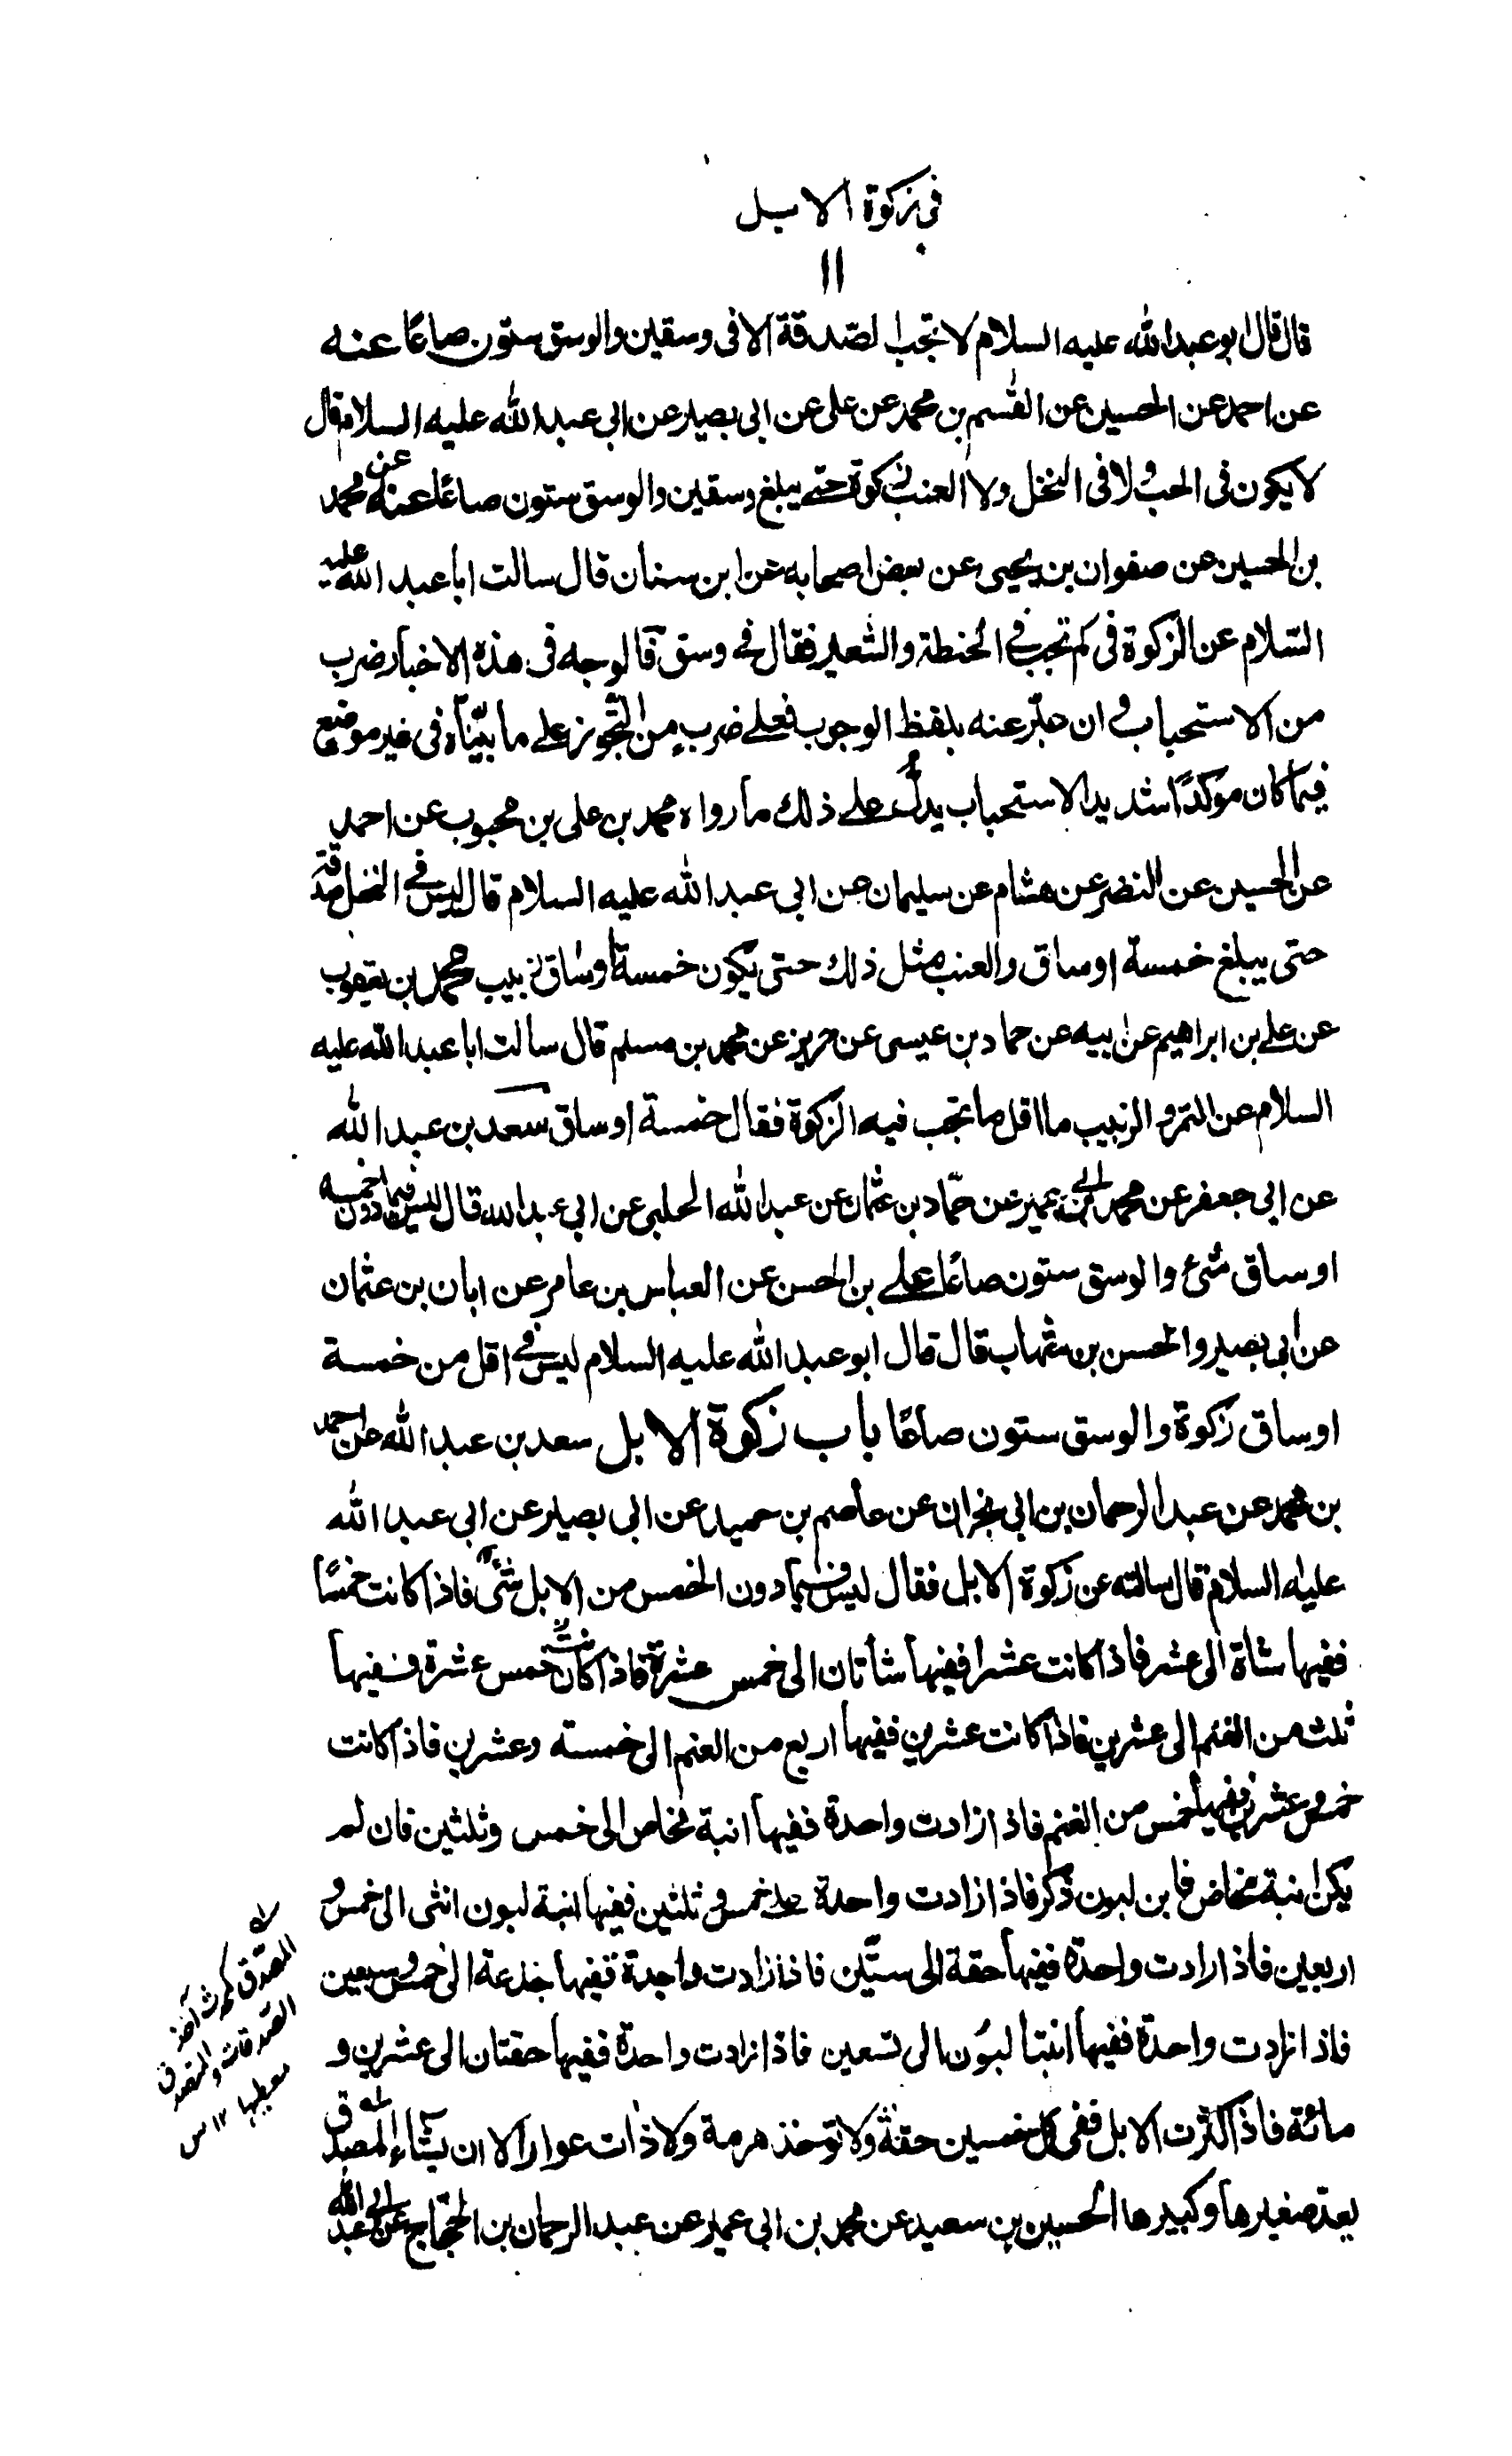 في زكوة الابل
١١
قال قال ابو عبدالله عليه السلام لا تجب الصّدقة الا في وسقين والوسق ستّون صاعًا عنه
عن احمد عن الحسين عن القسم بن محمد عن على عن ابى بصير عن ابى عبدالله عليه السلام قال
لا يكون في الحب ولا في النخل ولا العنب زكوة حتى يبلغ وسقين والوسق ستون صاعًا عنه عن محمد
بن الحسين عن صفوان بن يحيى عن بعض اصحابه عن ابن سنان قال سالت ابا عبد الله عليه
السّلام عن الزكوة في كم تجب في الحنطة والشعير فقال في وسق فالوجه في هذه الاخبار ضرب
من الاستحباب وان عبّر عنه بلفظ الوجوب فعلى ضربٍ من التجوز على ما بيّنّاه في غير موضع
فيما كان مؤكدًا شديد الاستحباب يدلّ على ذلك ما رواه محمد بن على بن محبوب عن احمد
عن الحسين عن النضر عن هشام عن سليمان عن ابى عبدالله عليه السلام قال ليس في النخل صدقة
حتى يبلغ خمسة اوساق والعنب مثل ذلك حتى يكون خمسة اوساق زبيب محمد بن يعقوب
عن على بن ابراهيم عن ابيه عن حماد بن عيسى عن حريز عن محمد بن مسلم قال سالت ابا عبدالله عليه
السلام عن التمر والزبيب ما اقل ما تجب فيه الزكوة فقال خمسة اوساق سعد بن عبدالله
عن ابى جعفر عن محمد بن ابى عمير عن حمّاد بن عثمان عن عبدالله الحلبى عن ابى عبدالله قال ليس فيما دون خمسه
اوساق شئ والوسق ستون صاعًا على بن الحسن عن العباس بن عامر عن ابان بن عثمان
عن ابى بصير والحسن بن شهاب قال قال ابو عبدالله عليه السلام ليس في اقل من خمسة
اوساق زكوة والوسق ستون صاعًا باب زكوة الابل سعد بن عبدالله عن احمد
بن محمد عن عبدالرحمان بن ابى نجران عن عاصم بن حميد عن ابى بصير عن ابى عبدالله
عليه السلام قال سالته عن زكوة الابل فقال ليس فيما دون الخمس من الابل شئ فاذا كانت خمسًا
ففيها شاة الى عشر فاذا كانت عشرا ففيها شاتان الى خمس عشرة فاذا كانت خمس عشرة ففيها
ثلث من الغنم الى عشرين فاذا كانت عشرين ففيها اربع من الغنم الى خمسة وعشرين فاذا كانت
خمس وعشرين ففيها خمس من الغنم فاذا زادت واحدة ففيها ابنة مخاض الى خمس وثلثين فان لم
يكن ابنة مخاض فابن لبون ذكر فاذا زادت واحدة على خمس وثلثين ففيها ابنة لبون انثى الى خمس و
اربعين فاذا زادت واحدة ففيها حقة الى ستّين فاذا زادت واحدة ففيها جذعة الى خمس وسبعين
فاذا زادت واحدة ففيها ابنتا لبون الى تسعين فاذا زادت واحدة ففيها حقتان الى عشرين و
مائة فاذا كثرت الابل ففي كل خمسين حقة ولا تؤخذ هرمة ولا ذات عوار الا ان يشاء المصدق
يعد صغيرها وكبيرها الحسين بن سعيد عن محمد بن ابى عمير عن عبدالرحمان بن الحجّاج عن ابى عبدالله
المصدق
آخذ
الصّدقات والمتصدق
معطيها ١٢ س